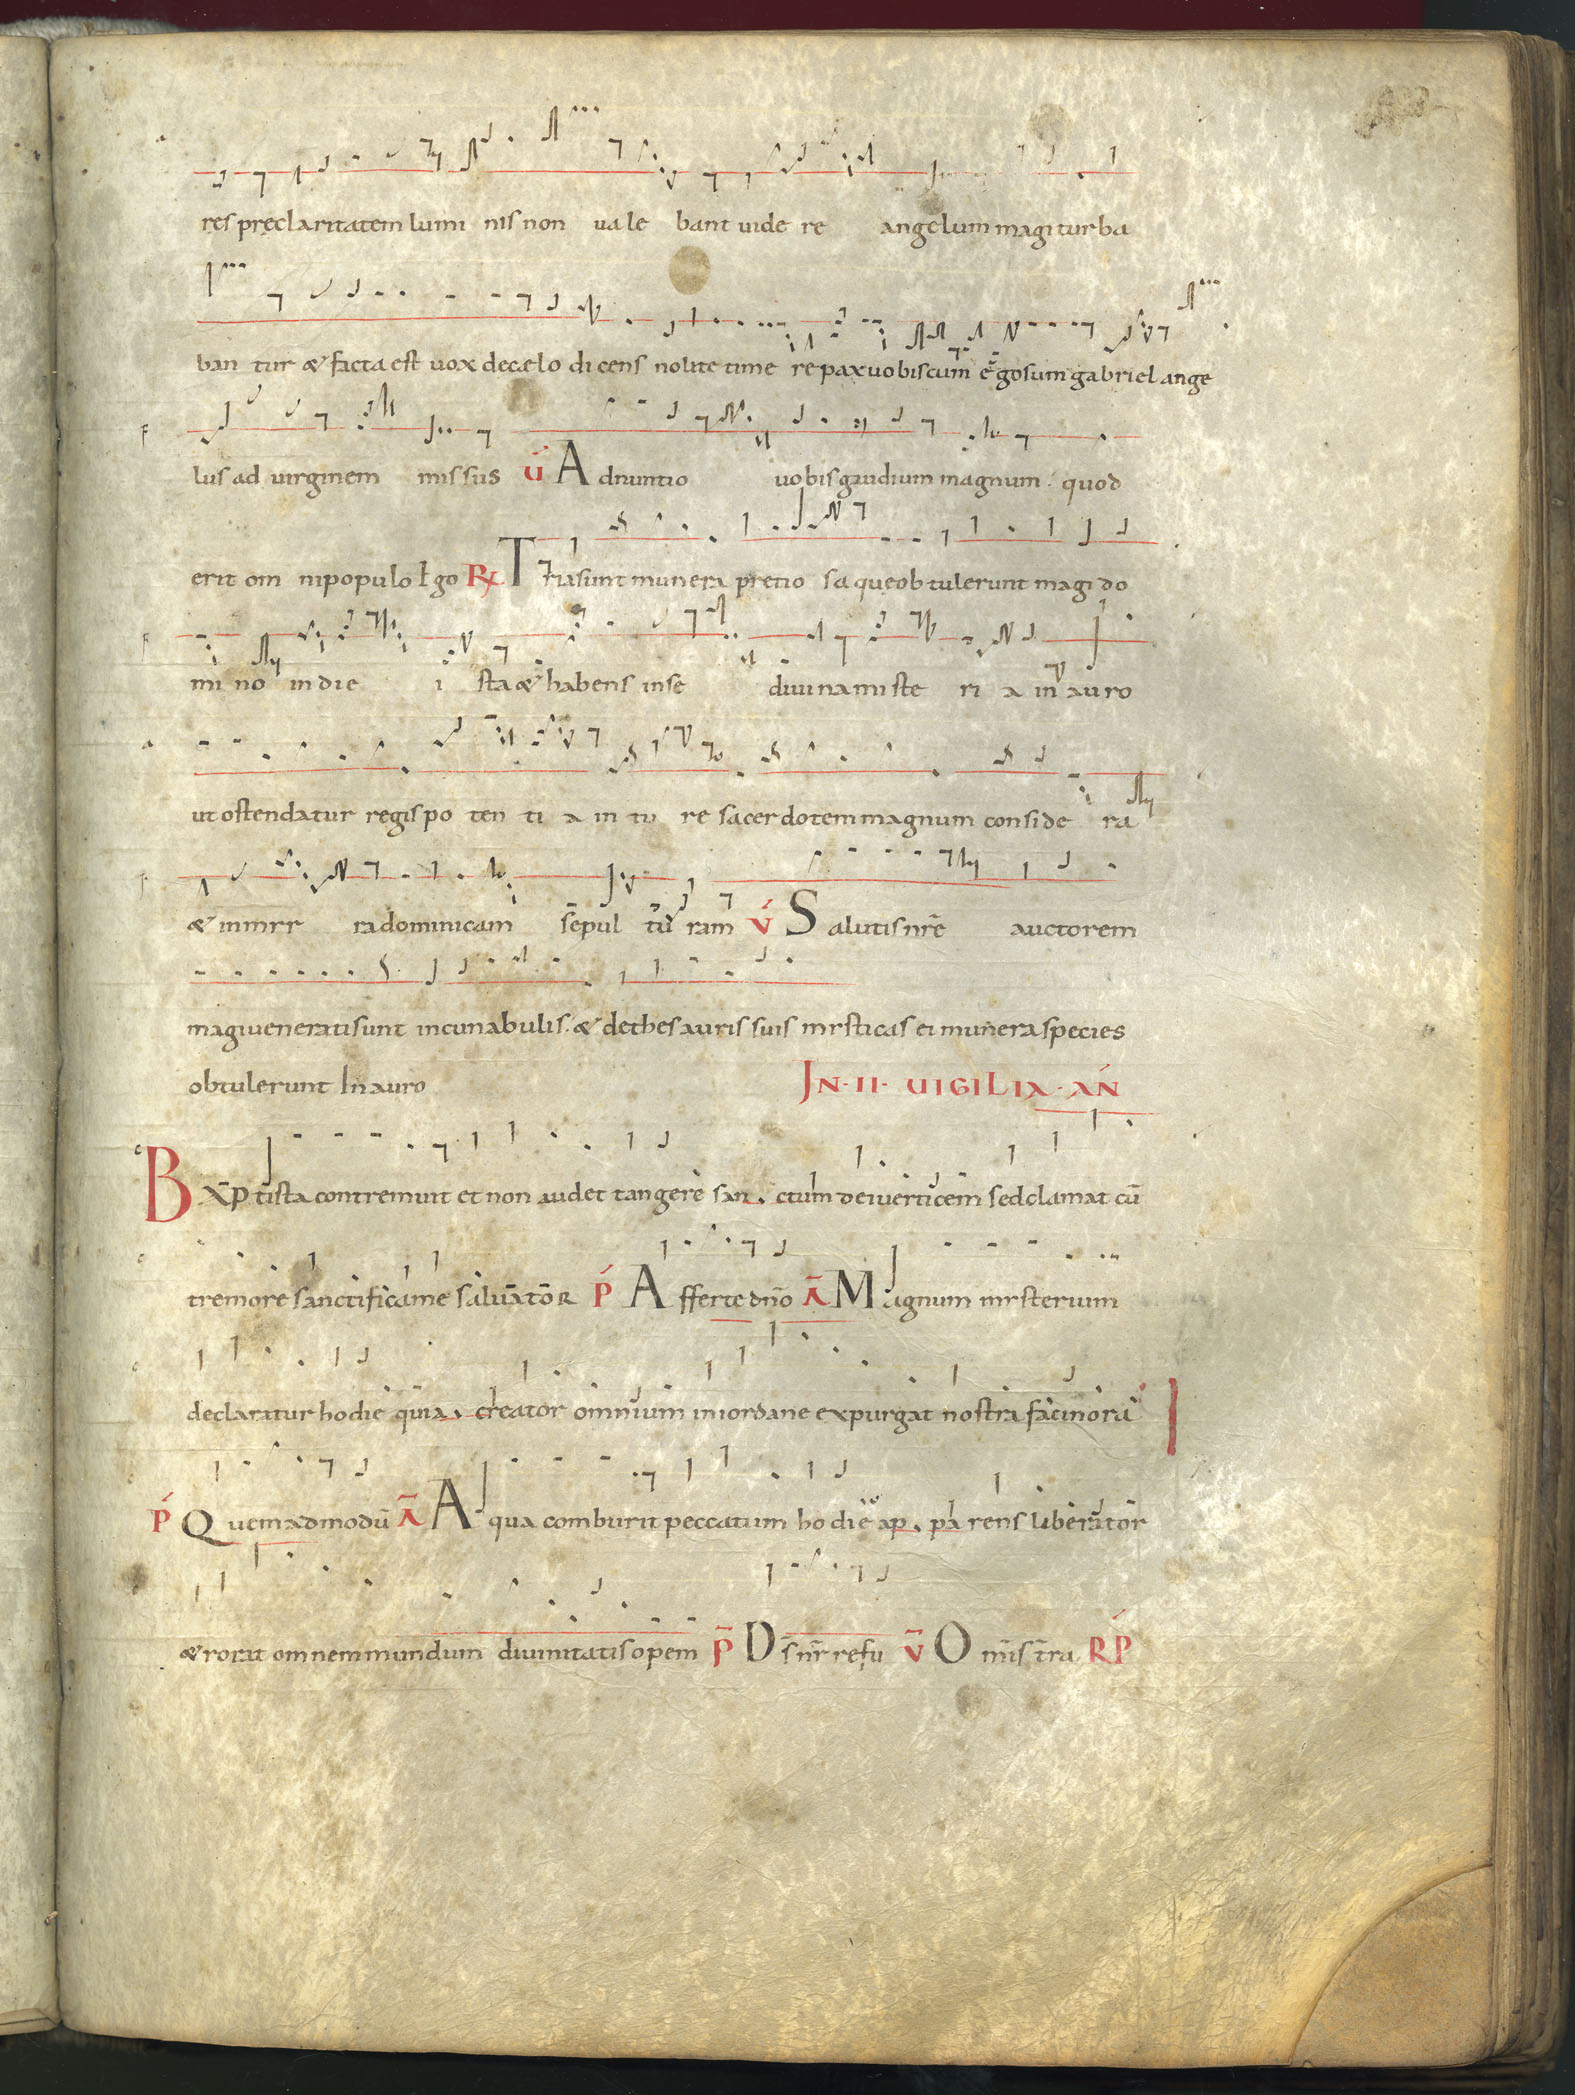 res pręclaritatem lumi nis non uale bant uide re angelum magi turba
ban tur & facta est uox decælo dicens nolite time re pax uobiscum ego sum gabriel ange
lus ad uirginem missus ū Adnuntio uobis gaudium magnum : quod
erit om ni populo Ego R Tria sunt munera pretio sa que obtulerunt magi do
mi no in die i sta & habens in se diuina miste ri a in auro
ut ostendatur regis po ten ti a in tu re sacerdotem magnum conside ra
& in mirr ra dominicam sepul tu ram v Salutis nrē auctorem
magi uenerati sunt incunabulis. & dethesauris suis mysticas ei munera species
obtulerunt In auro IN · II · UIGILIA · AN
BXP tista contremuit et non audet tangere san . ctum dei uerticem sed clamat cū
tremore sanctifica me saluator P Afferte dnō A Magnum mysterium
declaratur hodie quia . creator omnium in iordane expurgat nostra facinora
P Quemadmodū A Aqua comburit peccatum hodie ap . pa rens liberator
& rorat omnem mundum diuinitatis opem P Ds nr refu v Omis tra RP